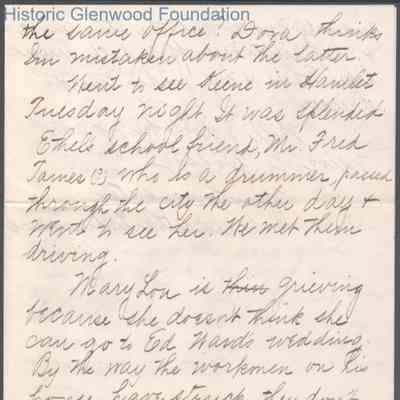 Historic Glenwood Foundation
the same office? Dora thinks
I'm mistaken about the latter.
Went to see Keene in Hamlet
Tuesday night. It was splendid
Ethel's school friend, Mr. Fred
James (?) who is a drummer, passed
through the city the other day +
went to see her. We met them
driving.
Mary Lou is thin grieving
because she doesn't think she
can go to Ed Ward's wedding.
By the way the workmen on his
house have struck they don't